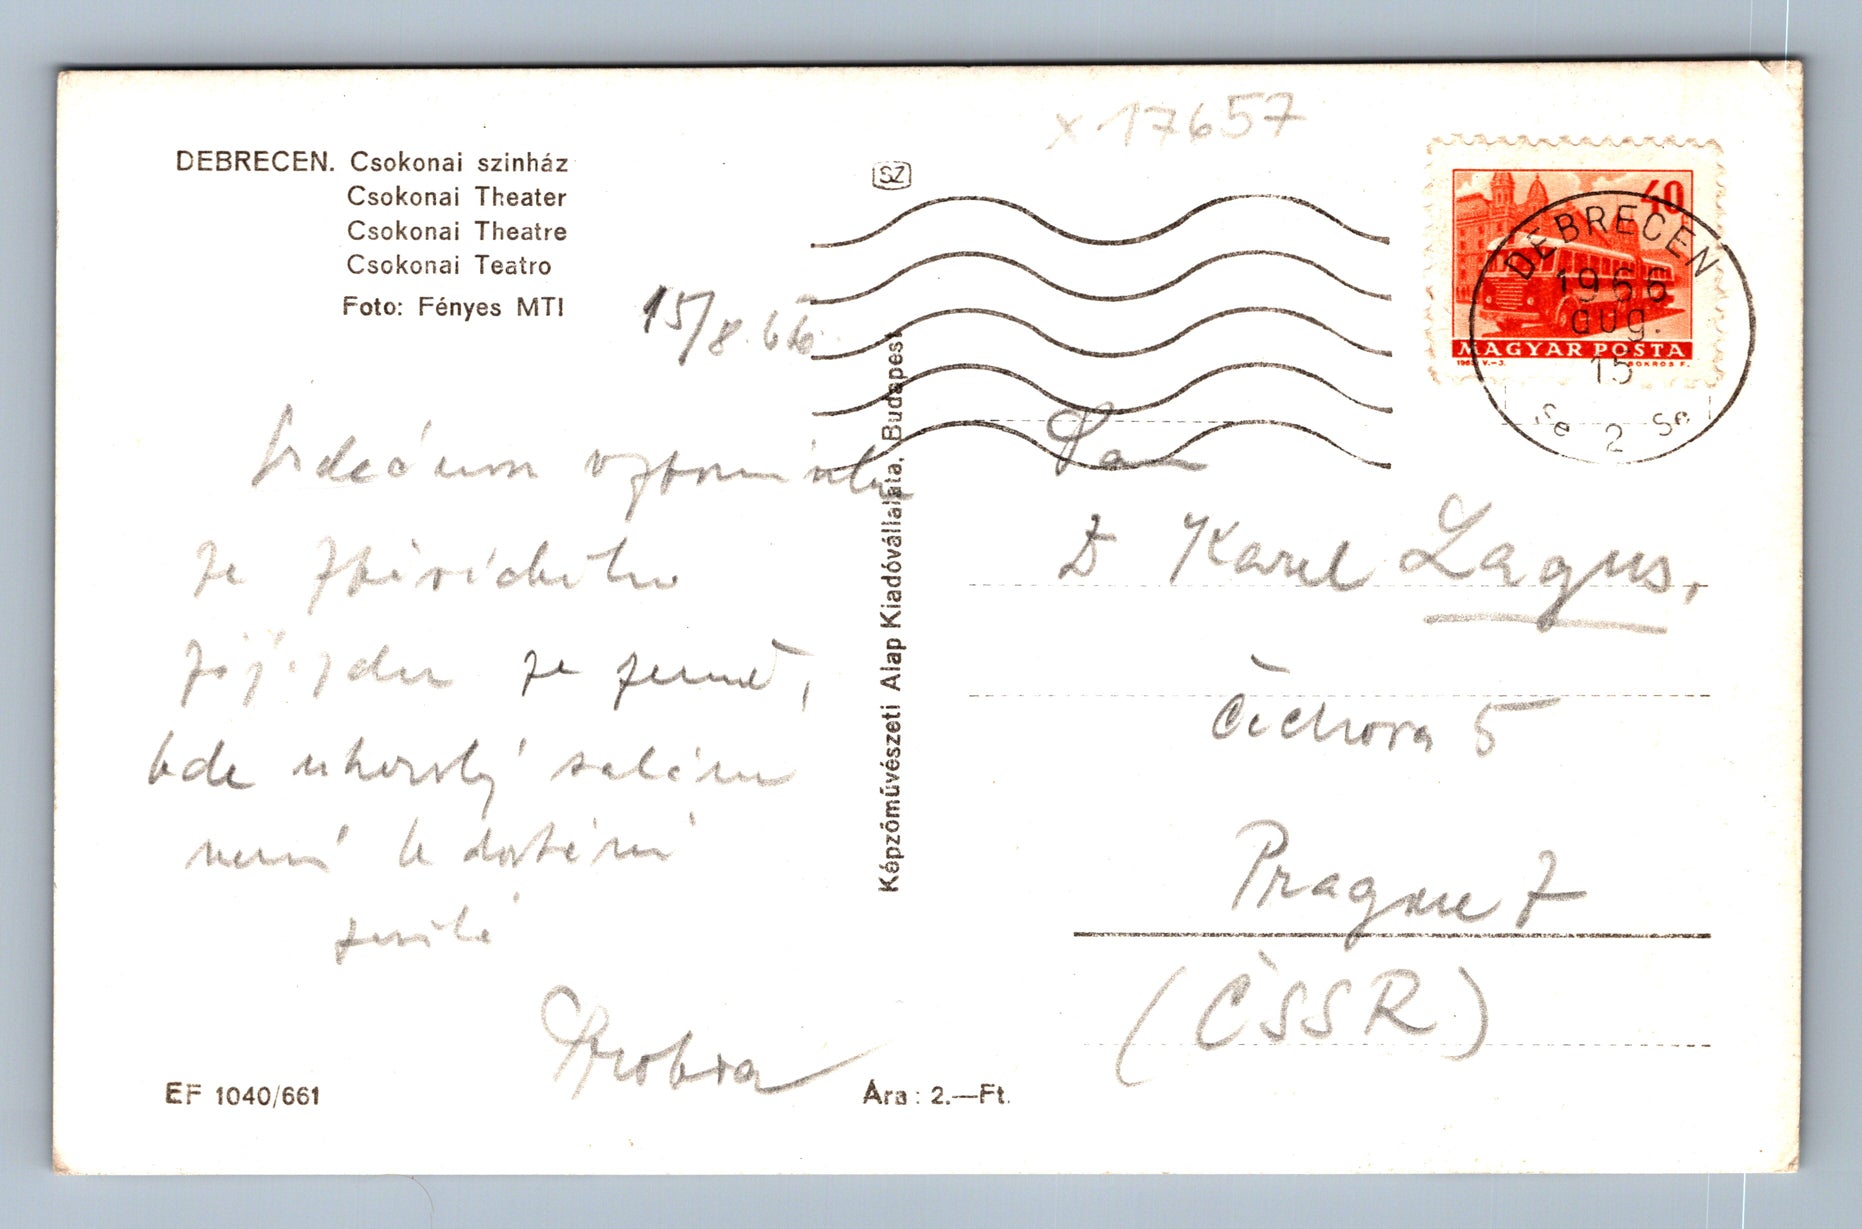 x 17657
DEBRECEN. Csokonai szinház
Csokonai Theater
Csokonai Theatre
Csokonai Teatro
Foto: Fényes MTI
SZ
15/8.66.
40
MAGYAR POSTA
DEBRECEN
1966
aug.
15
Se 2 Se
Srdečnou vzpomínku
ze
zájezdu ze země,
kde uherský salám
není k dostání
Képzőművészeti Alap Kiadóvállalata, Budapest
Pan
Dr Karel Lagus,
Čichova 5
Prague 7
(ČSSR)
EF 1040/661
Ára: 2.—Ft.